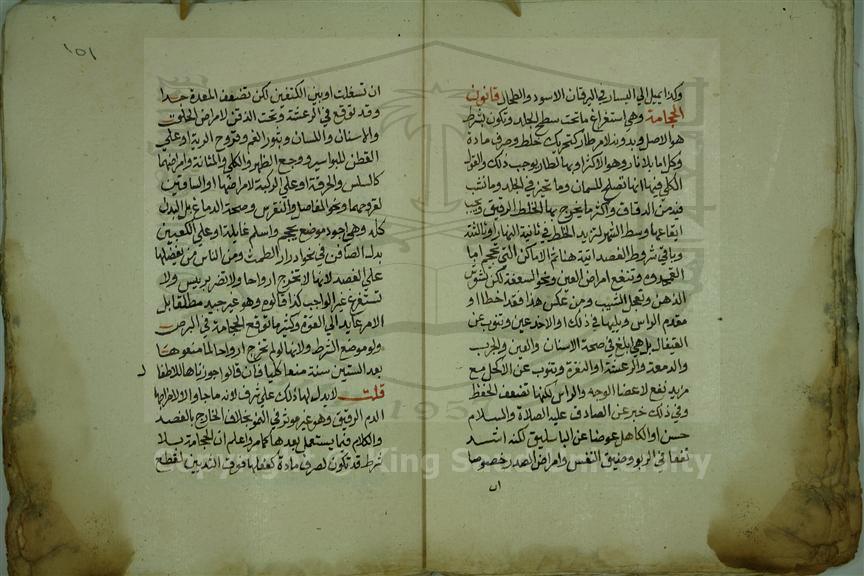 وكذا يميل الي اليسار في اليرقان الاسود والطحال قانون
الحجامة وهي استفراغ ما تحت سطح الجلد وتكون بشرط
هو الاصل وبدونه لامر طار كتحريك خلط وصرف مادة
وكل اما بلا نار وهو الاكثر او بها لطار يوجب ذلك والقول
الكلي فيها انها تصلح للسمان وما تحيز في الجلد وما نشب
فيه من الدقاق واكثر ما يخرج بها الخلط الرقيق ويجب
ايقاعها وسط الشهر لتزيد الخلط في ثانية النهار او ثالثة
وباقي شروط الفصد اتية هنا ثم الاماكن التي تحجم اما
القمحدوه وتنفع امراض العين ونحو السعفة لكن تشوش
الذهن وتعجل الشيب ومن عكس هذا فقد اخطا او
مقدم الراس ويليها في ذلك او الاخدعين وتنوب عن
القيفال بل هي ابلغ في صحة الاسنان والعين والجرب
والدمعة والرعشة او النقرة وتنوب عن الاكحل مع
مزيد نفع لاعضا الوجه والراس لكنها تضعف الحفظ
وفي ذلك خبر عن الصادق عليه الصلاة والسلام
حسن او الكاهل عوضا عن الباسليق لكنه اشد
نفعا في الربو وضيق النفس وامراض الصدر خصوصا
ان
١٥١
ان تسفلت او بين الكتفين لكن تضعف المعدة جدا
وقد توقع في الرعشة وتحت الذقن لامراض الحلق
والاسنان واللسان وبثور الفم وقروح الرية او علي
القطن للبواسير ووجع الظهر والكلي والمثانة وامراضها
كالسلس والحرقة او علي الركبة لامراضها او الساقين
لقروحهما ونحو المفاصل والنقرس وصحة الدماغ بل البدن
كله وهي اجود موضع يحجم واسلم غايلة او علي الكعبين
بدل الصافن في نحو ادرار الطمث ومن الناس من يفضلها
علي الفصد لانها لا تخرج ارواحا ولا تضر برييس ولا
تستفرغ غير الواجب كذا قالوه وهو غير جيد مطلقا بل
الامر عايد الي القوة وكثيرا ما توقع الحجامة في البرص
ولو موضع الشرط ولانها لو لم تخرج ارواحا لما منعوها
بعد الستين سنة منعا كليا فان قالوا جوزناها للاطفال
قلت لا يدل لها ذلك علي شرف لانه ما جاوا الا لاخراجها
الدم الرقيق وهو غير موثر في النمو بخلاف الخارج بالفصد
والكلام فيما يستعمل بعدها كما مر واعلم ان الحجامة بلا
شرط قد تكون لصرف مادة كفعلها فوق الثديين لقطع
Copyright © King Saud University
1957